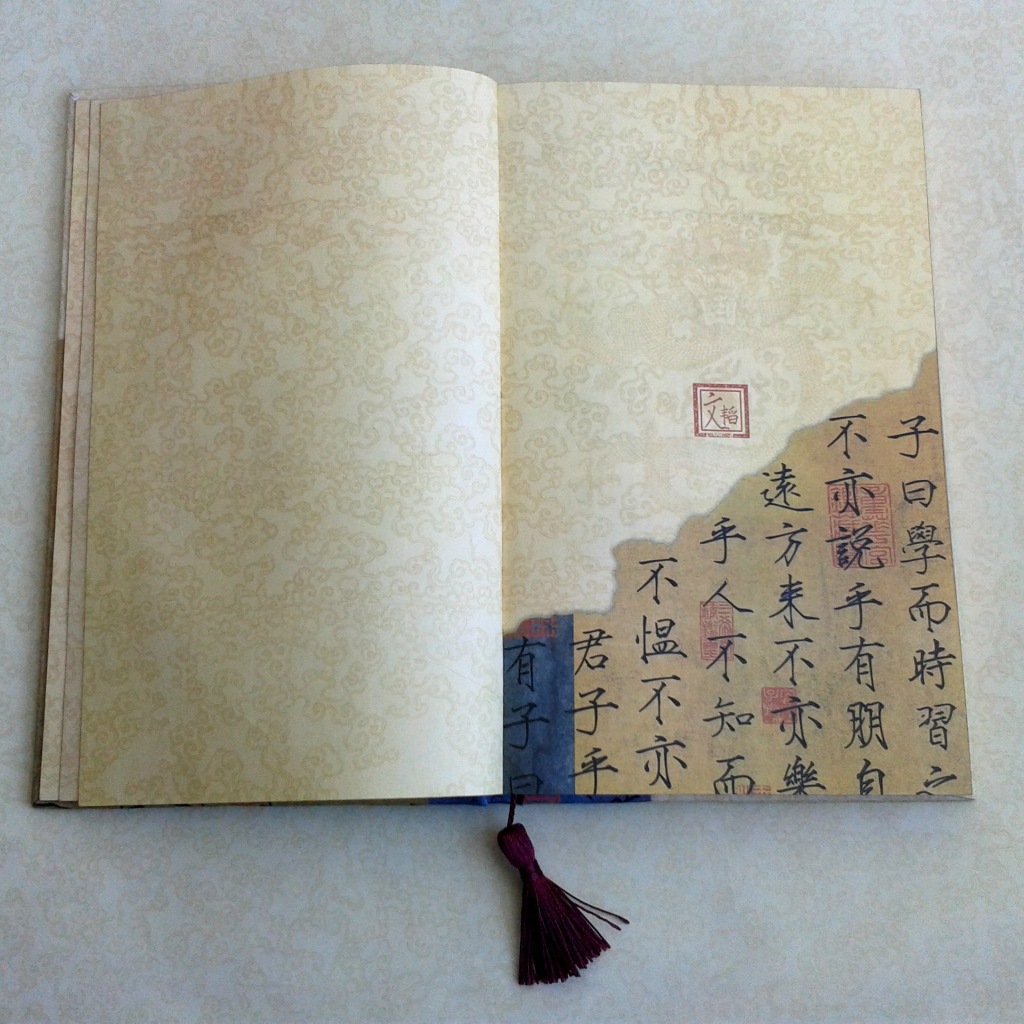 子曰學而時習之
不亦說乎有朋自
遠方来不亦樂
乎人不知而
不愠不亦
君子乎
有子曰
文韜